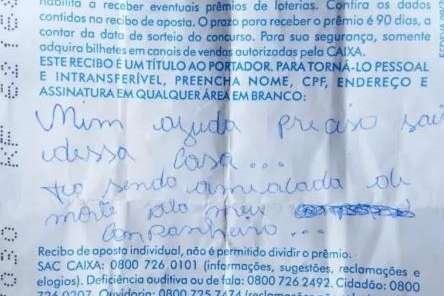 habilita a receber eventuais prêmios de loterias. Confira os dados
contidos no recibo de aposta. O prazo para receber o prêmio é 90 dias, a
contar da data de sorteio do concurso. Para sua segurança, somente
adquira bilhetes em canais de vendas autorizadas pela CAIXA.
ESTE RECIBO É UM TÍTULO AO PORTADOR. PARA TORNÁ-LO PESSOAL
E INTRANSFERÍVEL, PREENCHA NOME, CPF, ENDEREÇO E
ASSINATURA EM QUALQUER ÁREA EM BRANCO:
Mim ajuda preciso sai
dessa casa...
to sendo amealada de
morte pelo meu
companheiro...
Recibo de aposta individual, não é permitido dividir o prêmio.
SAC CAIXA: 0800 726 0101 (informações, sugestões, reclamações e
elogios). Deficiência auditiva ou de fala: 0800 726 2492. Cidadão: 0800
726 0207. Ouvidoria: 0800 725 7474